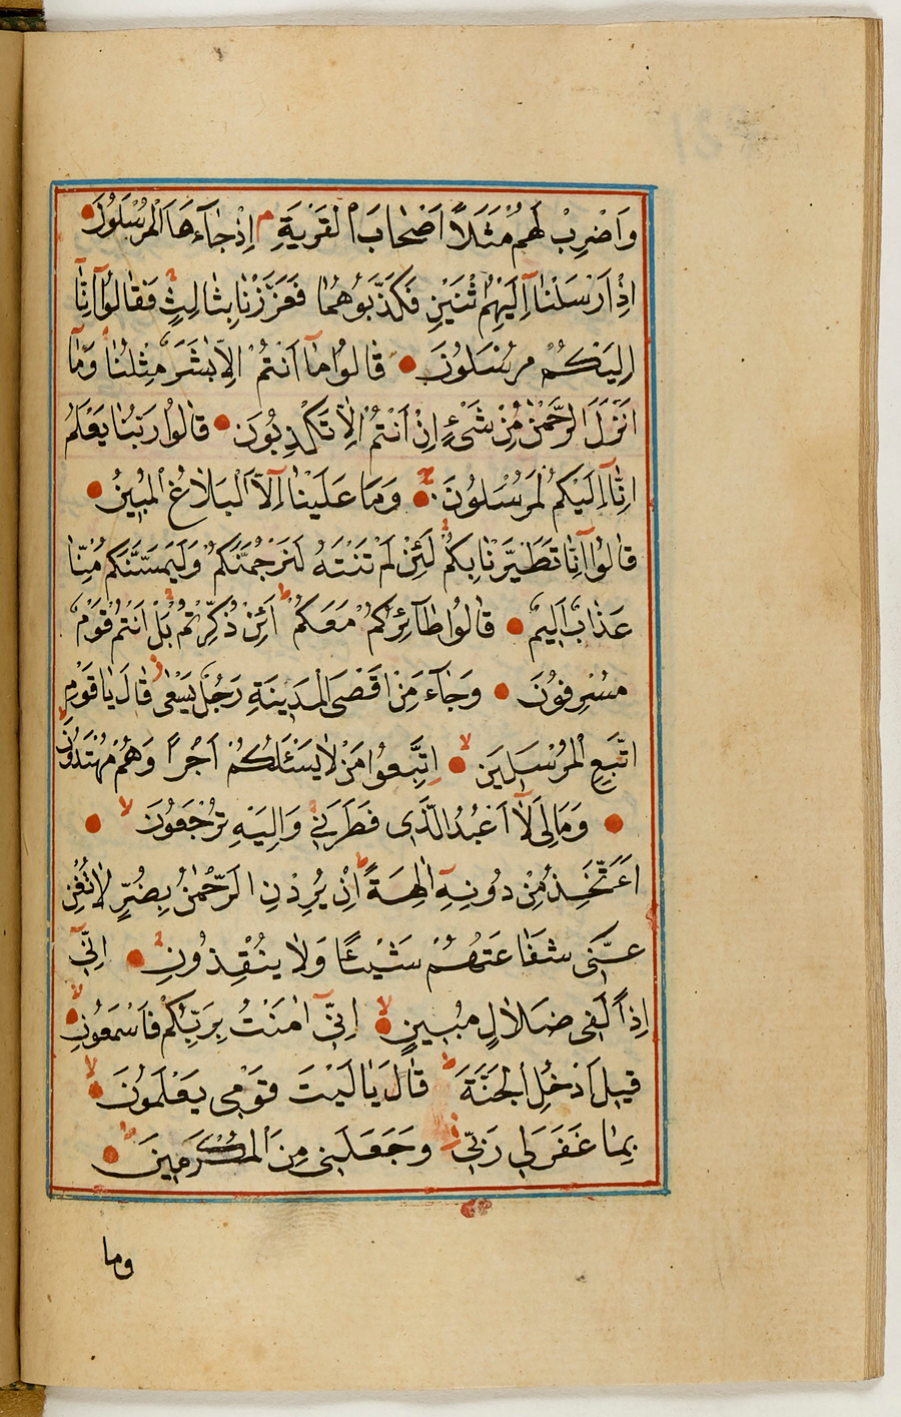 وَاضْرِبْ لَهُمْ مَثَلًا اَصْحَابَ الْقَرْيَةِ م اِذْ جَٓاءَهَا الْمُرْسَلُونَ
اِذْ اَرْسَلْنَٓا اِلَيْهِمُ اثْنَيْنِ فَكَذَّبُوهُمَا فَعَزَّزْنَا بِثَالِثٍ فَقَالُٓوا اِنَّٓا
اِلَيْكُمْ مُرْسَلُونَ قَالُوا مَٓا اَنْتُمْ اِلَّا بَشَرٌ مِثْلُنَا وَمَٓا
اَنْزَلَ الرَّحْمٰنُ مِنْ شَيْءٍ اِنْ اَنْتُمْ اِلَّا تَكْذِبُونَ قَالُوا رَبُّنَا يَعْلَمُ
اِنَّٓا اِلَيْكُمْ لَمُرْسَلُونَ وَمَا عَلَيْنَٓا اِلَّا الْبَلَاغُ الْمُبِينُ
قَالُٓوا اِنَّا تَطَيَّرْنَا بِكُمْ لَئِنْ لَمْ تَنْتَهُوا لَنَرْجُمَنَّكُمْ وَلَيَمَسَّنَّكُمْ مِنَّا
عَذَابٌ اَلِيمٌ قَالُوا طَٓائِرُكُمْ مَعَكُمْ ط اَئِنْ ذُكِّرْتُمْ بَلْ اَنْتُمْ قَوْمٌ
مُسْرِفُونَ وَجَٓاءَ مِنْ اَقْصَى الْمَدِينَةِ رَجُلٌ يَسْعٰى ز قَالَ يَا قَوْمِ
اتَّبِعُوا الْمُرْسَلِينَ لا اِتَّبِعُوا مَنْ لَا يَسْئَلُكُمْ اَجْرًا وَهُمْ مُهْتَدُونَ
وَمَا لِيَ لَٓا اَعْبُدُ الَّذِي فَطَرَنِي وَاِلَيْهِ تُرْجَعُونَ لا
ءَاَتَّخِذُ مِنْ دُونِهِٓ اٰلِهَةً اِنْ يُرِدْنِ الرَّحْمٰنُ بِضُرٍّ لَا تُغْنِ
عَنِّي شَفَاعَتُهُمْ شَيْئًا وَلَا يُنْقِذُونِ اِنِّٓي
اِذًا لَفِي ضَلَالٍ مُبِينٍ لا اِنِّٓي اٰمَنْتُ بِرَبِّكُمْ فَاسْمَعُونِ لا
قِيلَ ادْخُلِ الْجَنَّةَ ط قَالَ يَا لَيْتَ قَوْمِي يَعْلَمُونَ لا
بِمَا غَفَرَ لِي رَبِّي وَجَعَلَنِي مِنَ الْمُكْرَمِينَ
وما